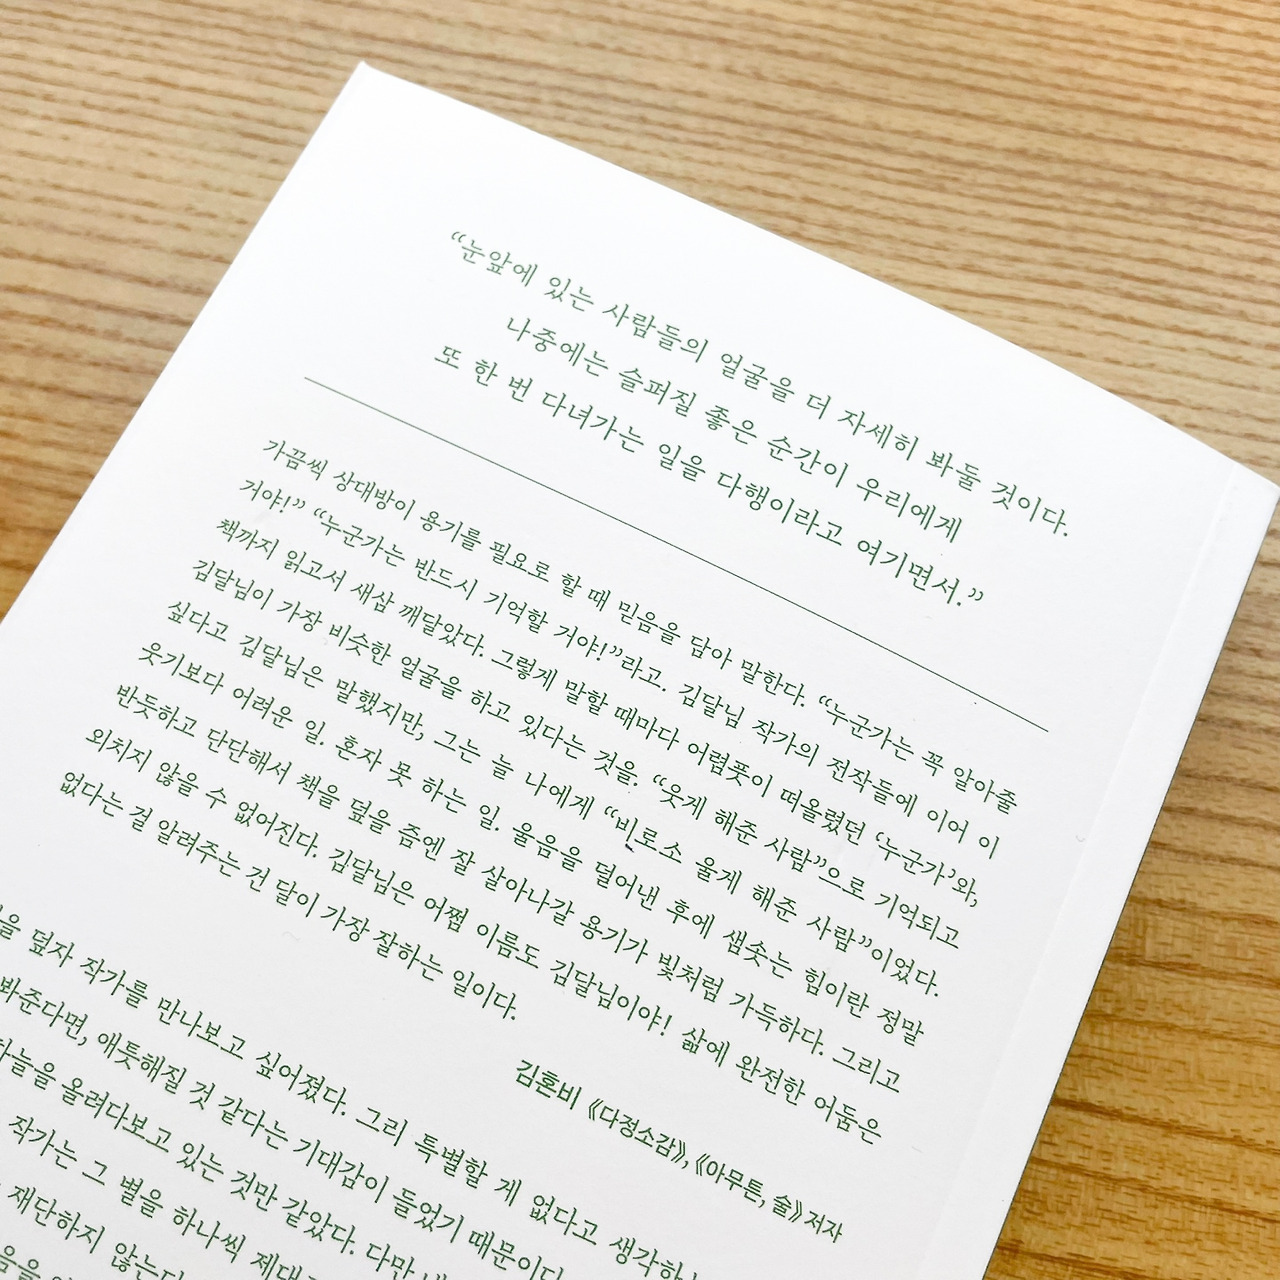 “눈앞에 있는 사람들의 얼굴을 더 자세히 봐둘 것이다.
나중에는 슬퍼질 좋은 순간이 우리에게
또 한 번 다녀가는 일을 다행이라고 여기면서.”
가끔씩 상대방이 용기를 필요로 할 때 믿음을 담아 말한다. “누군가는 꼭 알아줄
거야!” “누군가는 반드시 기억할 거야!”라고. 김달님 작가의 전작들에 이어 이
책까지 읽고서 새삼 깨달았다. 그렇게 말할 때마다 어렴풋이 떠올렸던 ‘누군가’와,
김달님이 가장 비슷한 얼굴을 하고 있다는 것을. “웃게 해준 사람”으로 기억되고
싶다고 김달님은 말했지만, 그는 늘 나에게 “비로소 울게 해준 사람”이었다.
웃기보다 어려운 일. 혼자 못 하는 일. 울음을 덜어낸 후에 샘솟는 힘이란 정말
반듯하고 단단해서 책을 덮을 즘엔 잘 살아나갈 용기가 빛처럼 가득하다. 그리고
외치지 않을 수 없어진다. 김달님은 어쩜 이름도 김달님이야! 삶에 완전한 어둠은
없다는 걸 알려주는 건 달이 가장 잘하는 일이다.
김혼비 《다정소감》, 《아무튼, 술》 저자
덮자 작가를 만나보고 싶어졌다. 그리 특별할 게 없다고 생각하
봐준다면, 애틋해질 것 같다는 기대감이 들었기 때문이다
하늘을 올려다보고 있는 것만 같았다. 다만
작가는 그 별을 하나씩 제대
재단하지 않는다